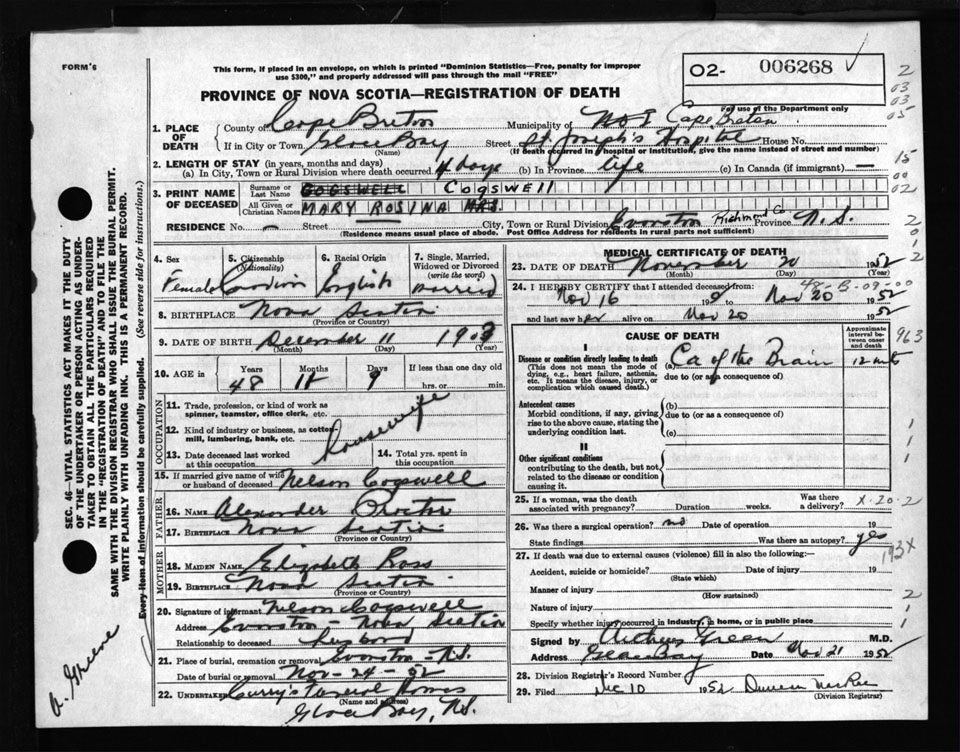 FORM '6
This form, if placed in an envelope, on which is printed "Dominion Statistics—Free, penalty for improper
use $300," and properly addressed will pass through the mail "FREE"
PROVINCE OF NOVA SCOTIA—REGISTRATION OF DEATH
O2- 006268
For use of the Department only
1. PLACE OF DEATH
County of Cape Breton Municipality of Cape Breton
If in City or Town Glace Bay Street St. Joseph's Hospital House No.
(Name) (If death occurred in a hospital or institution, give the name instead of street and number)
2. LENGTH OF STAY (in years, months and days)
(a) In City, Town or Rural Division where death occurred 4 days (b) In Province life (c) In Canada (if immigrant) —
3. PRINT NAME OF DECEASED
Surname or Last Name GOGSWELL COGSWELL
All Given or Christian Names MARY ROSINA MRS.
RESIDENCE No. — Street City, Town or Rural Division Evanston Richmond Co Province N.S.
(Residence means usual place of abode. Post Office Address for residents in rural parts not sufficient)
4. Sex Female
5. Citizenship (Nationality) Canadian
6. Racial Origin English
7. Single, Married, Widowed or Divorced (write the word) Married
8. BIRTHPLACE Nova Scotia
(Province or Country)
9. DATE OF BIRTH December 11 1903
(Month) (Day) (Year)
10. AGE in Years 48 Months 11 Days 9 If less than one day old hrs. or min.
OCCUPATION
11. Trade, profession, or kind of work as spinner, teamster, office clerk, etc.
12. Kind of industry or business, as cotton-mill, lumbering, bank, etc. Housewife
13. Date deceased last worked at this occupation
14. Total yrs. spent in this occupation
15. If married give name of wife or husband of deceased Nelson Cogswell
FATHER
16. NAME Alexander Proctor
17. BIRTHPLACE Nova Scotia
(Province or Country)
MOTHER
18. MAIDEN NAME Elizabeth Ross
19. BIRTHPLACE Nova Scotia
(Province or Country)
20. Signature of informant Nelson Cogswell
Address Evanston - Nova Scotia
Relationship to deceased husband
21. Place of burial, cremation or removal Evanston - N.S.
Date of burial or removal Nov - 24 - 52
22. UNDERTAKER Curry's Funeral Homes
(Name and address)
Glace Bay, N.S.
MEDICAL CERTIFICATE OF DEATH
23. DATE OF DEATH November 20 1952
(Month) (Day) (Year)
48-B-09-00
24. I HEREBY CERTIFY that I attended deceased from:
Nov 16 19 to Nov 20 1952
and last saw her alive on Nov 20 1952
CAUSE OF DEATH
Approximate interval between onset and death
I
Disease or condition directly leading to death (a) Ca of the Brain 12 mts
(This does not mean the mode of dying, e.g., heart failure, asthenia, etc. It means the disease, injury, or complication which caused death.)
due to (or as a consequence of)
Antecedent causes
Morbid conditions, if any, giving rise to the above cause, stating the underlying condition last.
(b)
due to (or as a consequence of)
(c)
II
Other significant conditions
contributing to the death, but not related to the disease or condition causing it.
25. If a woman, was the death associated with pregnancy? Duration weeks. Was there a delivery?
26. Was there a surgical operation? no Date of operation 19
State findings Was there an autopsy? yes
27. If death was due to external causes (violence) fill in also the following:—
Accident, suicide or homicide? Date of injury 19
(State which)
Manner of injury
(How sustained)
Nature of injury
Specify whether injury occurred in industry, in home, or in public place
Signed by Arthur Green M.D.
Address Glace Bay Date Nov 21 1952
28. Division Registrar's Record Number
29. Filed Dec 10 1952 Duncan MacRae
(Division Registrar)
SEC. 46—VITAL STATISTICS ACT MAKES IT THE DUTY
OF THE UNDERTAKER OR PERSON ACTING AS UNDER-
TAKER TO OBTAIN ALL THE PARTICULARS REQUIRED
IN THE "REGISTRATION OF DEATH" AND TO FILE THE
SAME WITH THE DIVISION REGISTRAR WHO SHALL ISSUE THE BURIAL PERMIT.
WRITE PLAINLY WITH UNFADING INK. THIS IS A PERMANENT RECORD.
Every item of information should be carefully supplied. (See reverse side for instructions.)
A. Greene
2
03
03
05
15
00
02
2
0
1
2
963
1
1
X-20-2
193X
2
1